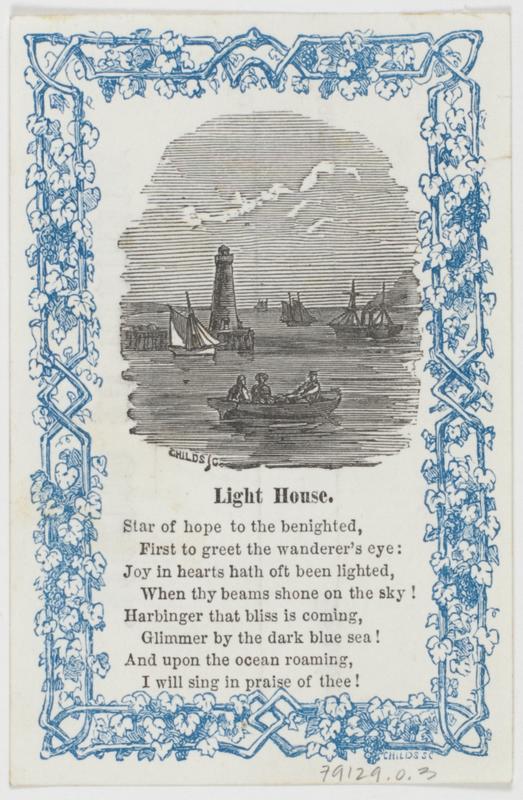 CHILDS SC.
Light House.
Star of hope to the benighted,
First to greet the wanderer's eye:
Joy in hearts hath oft been lighted,
When thy beams shone on the sky!
Harbinger that bliss is coming,
Glimmer by the dark blue sea!
And upon the ocean roaming,
I will sing in praise of thee!
CHILDS SC
79129.0.3